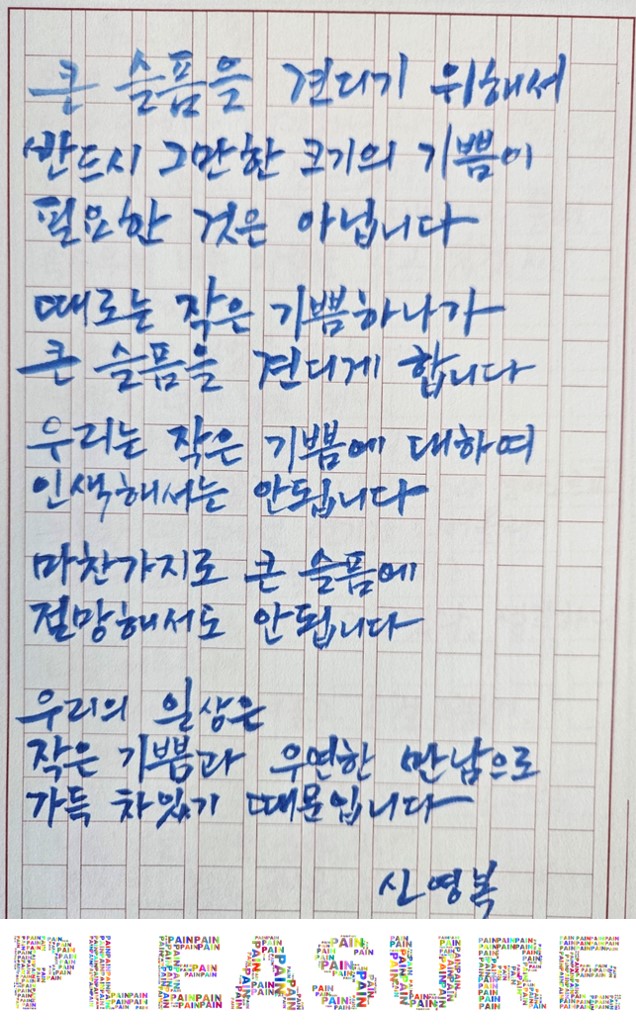 큰 슬픔을 견디기 위해서
반드시 그만한 크기의 기쁨이
필요한 것은 아닙니다
때로는 작은 기쁨하나가
큰 슬픔을 견디게 합니다
우리는 작은 기쁨에 대하여
인색해서는 안됩니다
마찬가지로 큰 슬픔에
절망해서도 안됩니다
우리의 일상은
작은 기쁨과 우연한 만남으로
가득 차있기 때문입니다
신영복
PLEASURE